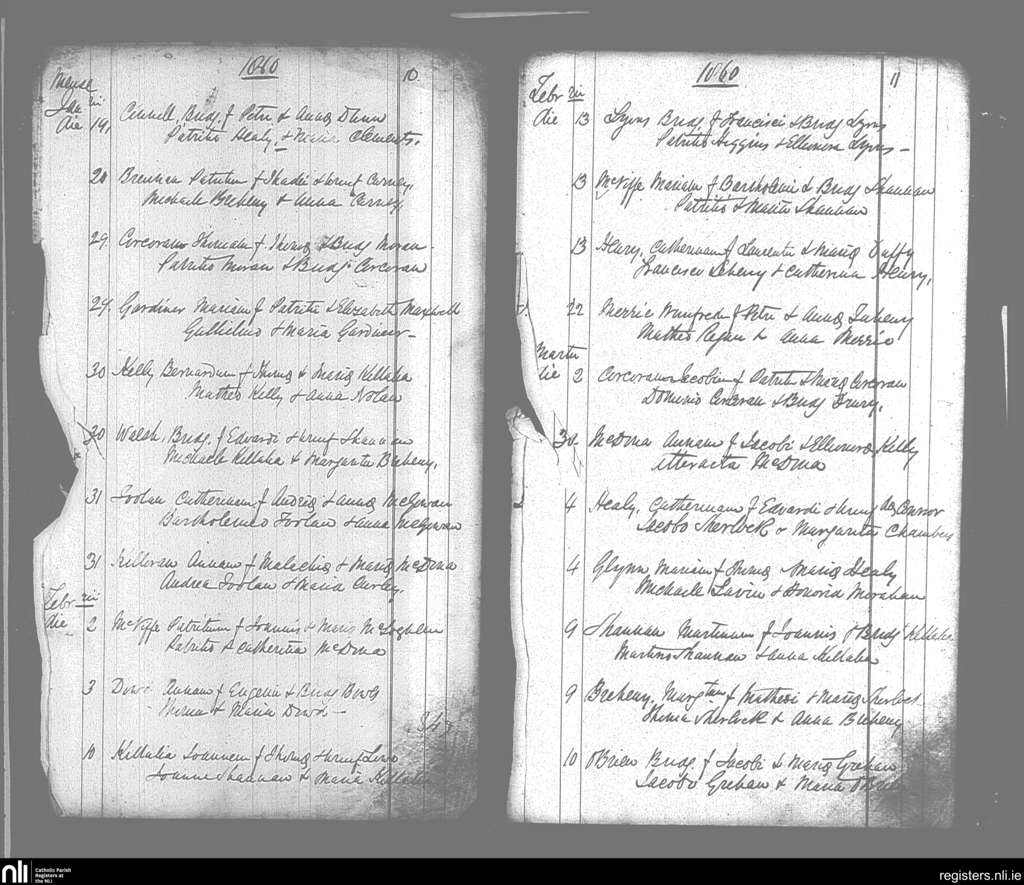 1860
10
Mense
Jan rii
die 19, Cunnell, Bridg. f Petri & Anna Dunn
Patritio Healy, & Maria Clements,
20 Brennan Patritm f Thadei & Winif Carney,
Michaele Breheny & Anna Carney,
29. Corcoran Thomam f Thoma & Bridg Moran
Patritio Moran & Bridg. Corcoran
29. Gardiner Mariam f Patritii & Elizabeth Maxwell
Gulielmo & Maria Gardiner –
30 Kelly Bernardum f Thoma & Maria Killalia
Matheo Kelly & Anna Nolan
30 Walsh, Bridg. f Edvardi & Winif Shannan
Michaele Killalia & Margarita Breheny,
31 Foolan Catherinam f Andrea & Anna McGowan
Bartholomeo Foolan & Anna McGowan
31 Killoran Annam f Malachia & Maria McDona
Andrea Foolan & Maria Curley,
Febr rii
die 2 McNiffe Patritium f Joannis & Maria McLoghlen
Patritio & Catherina McDona
3 Dowd Annam f Eugenii & Bridg
& Maria Dowd –
10 Killalia Joannem f Thoma & Winif
Joanne Shannan & Maria Killalia
1860
11
Febr rii
die 13 Lyons Bridg. f Francisci & Bridg Lyons
Patritio Higgins & Ellenora Lyons –
13 McNiffe Mariam f Bartholmi & Bridg Shannan
Patritio & Maria Shannan
13 Henry, Catherinam f Laurentii & Maria Duffy
Francisco Leheny & Catherina Henry,
22 Merric Winifred f Petri & Anna
Matheo Regan & Anna Merric
Martii
die 2 Corcoran Jacobum f Patritii & Maria Corcoran
Dominio Corcoran & Bridg Drury,
McDona Annam f Jacobi & Ellenora Kelly
Atteracta McDona
4 Healy, Catherinam f Edvardi & Winif O Connor
Jacobo Sherlock & Margarita Chambers
4 Glynn Mariam f Thoma & Maria Healy
Michaele Lavin & Honoria Morahan
9 Shannan Martinum f Joannis & Bridg Killalia
Martino Shannan & Anna Killalia
9 Breheny, Marg tam f Mathei & Maria Sherlock
Thoma Sherlock & Anna Breheny
10 OBrien Bridg. f Jacobi & Maria Grehan
Jacobo Grehan & Maria OBrien
nli
Catholic Parish
Registers at
the NLI
registers.nli.ie